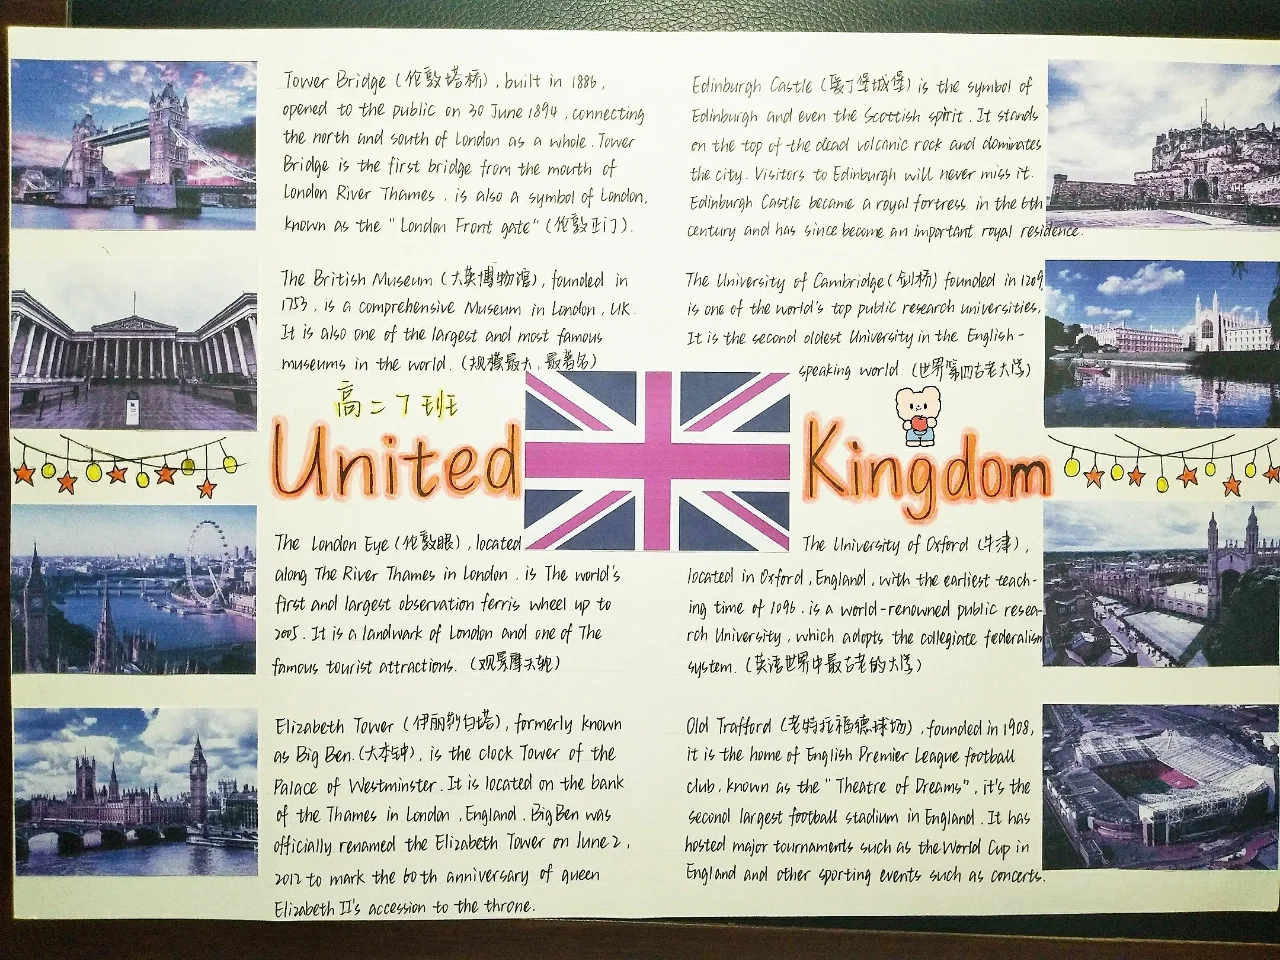 Tower Bridge (伦敦塔桥), built in 1886,
opened to the public on 30 June 1894, connecting
the north and south of London as a whole. Tower
Bridge is the first bridge from the mouth of
London River Thames, is also a symbol of London,
known as the "London Front gate" (伦敦正门).
The British Museum (大英博物馆), founded in
1753, is a comprehensive Museum in London, UK.
It is also one of the largest and most famous
museums in the world. (规模最大, 最著名)
高二7班
United
The London Eye (伦敦眼), located
along The River Thames in London, is The world's
first and largest observation ferris wheel up to
2005. It is a landwark of London and one of The
famous tourist attractions. (观景摩天轮)
Elizabeth Tower (伊丽莎白塔), formerly known
as Big Ben (大本钟), is the clock Tower of the
Palace of Westminster. It is located on the bank
of the Thames in London, England. Big Ben was
officially renamed the Elizabeth Tower on June 2,
2012 to mark the 60th anniversary of queen
Elizabeth II's accession to the throne.
Edinburgh Castle (爱丁堡城堡) is the symbol of
Edinburgh and even the Scottish spirit. It stands
on the top of the dead volcanic rock and dominates
the city. Visitors to Edinburgh will never miss it.
Edinburgh Castle became a royal fortress in the 6th
century and has since become an important royal residence.
The University of Cambridge (剑桥) founded in 1209,
is one of the world's top public research universities.
It is the second oldest University in the English-
speaking world. (世界第四古老大学)
Kingdom
The University of Oxford (牛津),
located in Oxford, England, with the earliest teach-
ing time of 1096, is a world-renowned public resea-
rch University, which adopts the collegiate federalism
system. (英语世界中最古老的大学)
Old Trafford (老特拉福德球场), founded in 1908,
it is the home of English Premier League football
club, known as the "Theatre of Dreams", it's the
second largest football stadium in England. It has
hosted major tournaments such as the World Cup in
England and other sporting events such as concerts.